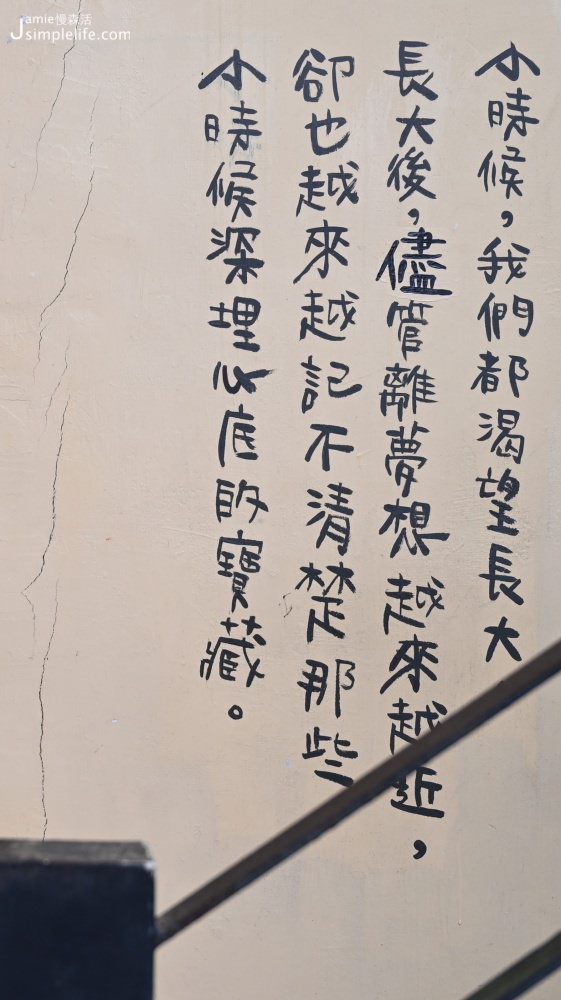 Jamie慢森活
Jsimplelife.com
小時候，我們都渴望長大
長大後，儘管離夢想越來越近，
卻也越來越記不清楚那些
小時候深埋心底的寶藏。